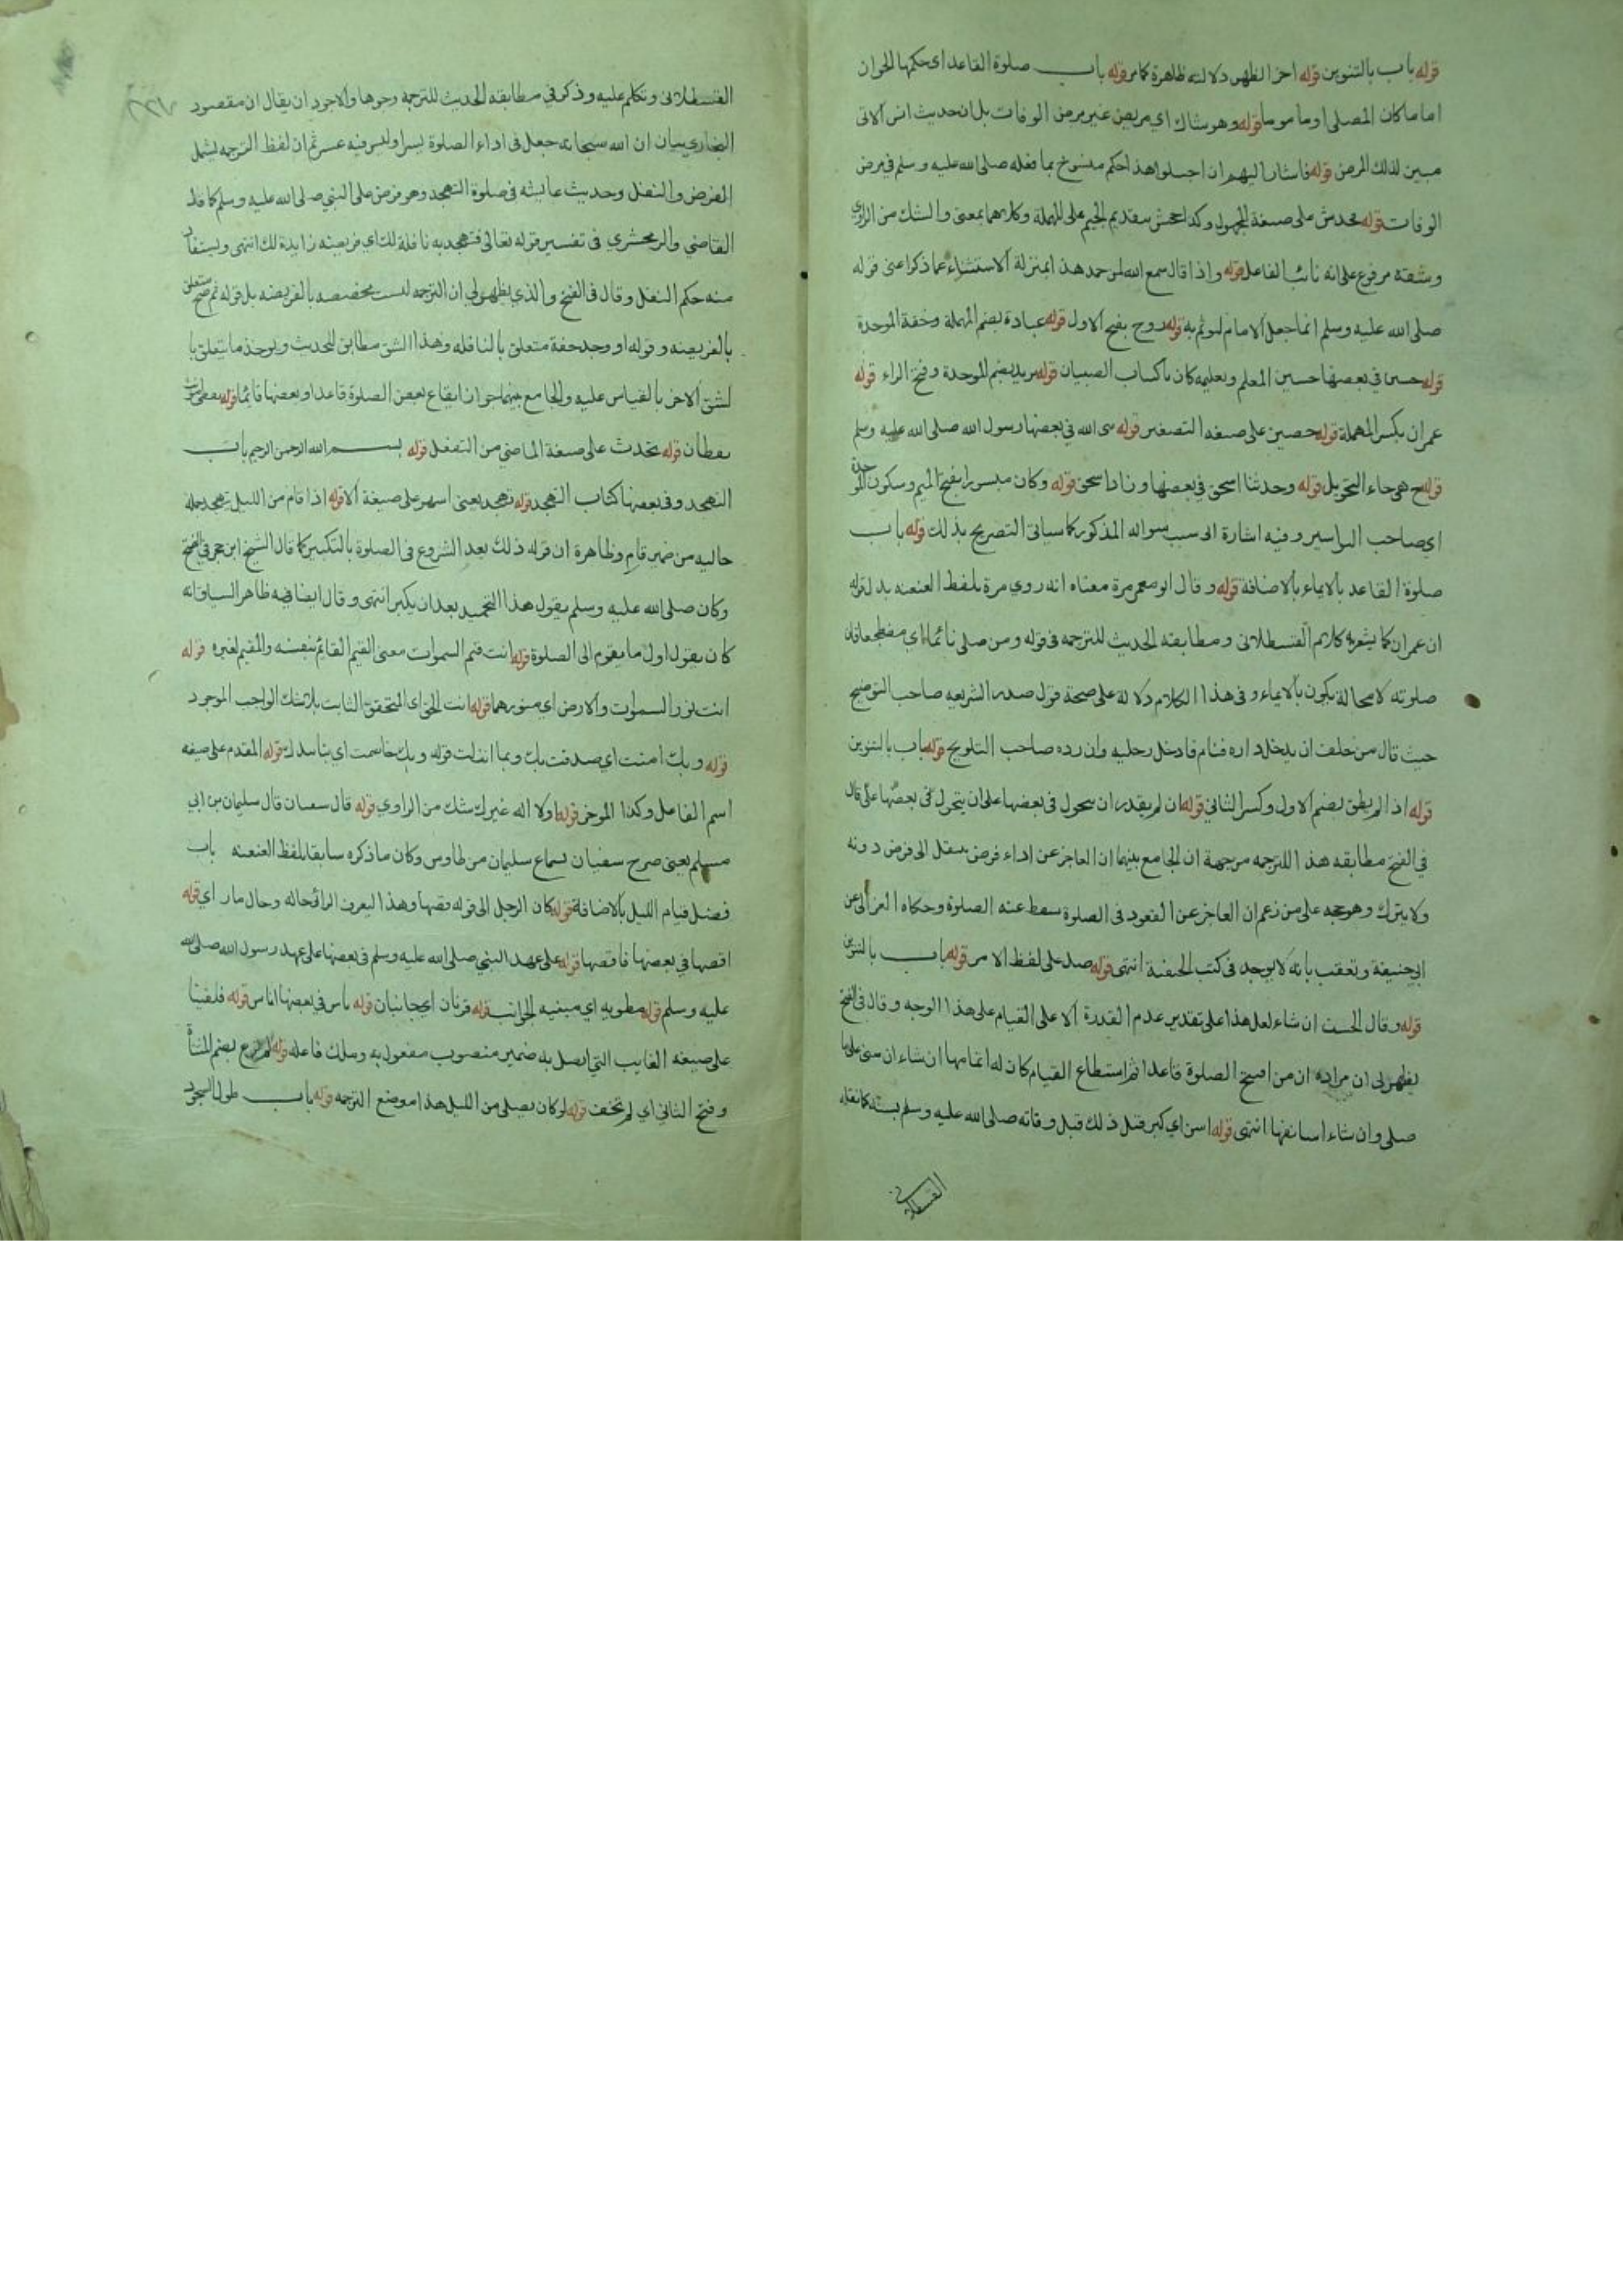 قوله باب بالتنوين قوله اخر الظهر دلالته ظاهرة كما مر قوله باب صلوة القاعد اى حكمها الجواز
اماما كان المصلى او ماموما قوله وهو شاك اي مريض غير مرض الوفات بل ان حديث انس الاتى
مبين لذلك المرض قوله فاشار اليهم ان اجلسوا هذا حكم منسوخ بما فعله صلى الله عليه وسلم في مرض
الوفات قوله فخدش على صيغة المجهول وكذا جحش بتقديم الجيم على المهملة وكلاهما بمعنى والشك من الراوي
وشقه مرفوع على انه نائب الفاعل قوله واذا قال سمع الله لمن حمده هذا بمنزلة الاستثناء عما ذكر اعنى قوله
صلى الله عليه وسلم انما جعل الامام ليوتم به قوله روح بفتح الاول قوله عبادة بضم المهملة وخفة الموحدة
قوله حسين في بعضها حسين المعلم وتعليمه كان باكتاب الصبيان قوله بريد بضم الموحدة وفتح الراء قوله
عمران بكسر المهملة قوله حصين على صيغة التصغير قوله نبى الله في بعضها رسول الله صلى الله عليه وسلم
قوله ح هى حاء التحويل قوله وحدثنا اسحق في بعضها وزاد اسحق قوله وكان مبسورا بفتح الميم وسكون الموحدة
اي صاحب البواسير وفيه اشارة الى سبب سواله المذكور كما سياتى التصريح بذلك قوله باب
صلوة القاعد بالايماء بالاضافة قوله وقال ابو معمر مرة معناه انه روي مرة بلفظ العنعنه بدل قوله
ان عمران كما يشعر به كلام القسطلانى ومطابقة الحديث للترجمه فى قوله ومن صلى نائما اي مضطجعا فان
صلوته لا محالة يكون بالايماء وفى هذا الكلام دلالة على صحة قول صدر الشريعه صاحب التوضيح
حيث قال من حلف ان يدخل داره فنام فادخل رجليه وان رده صاحب التلويح قوله باب بالتنوين
قوله اذا لم يطق بضم الاول وكسر الثاني قوله ان لم يقدر ان يتحول فى بعضها على ان يتحول فى بعضها على قال
في الفتح مطابقه هذا للترجمه من جهة ان الجامع بينهما ان العاجز عن اداء فرض ينتقل الى فرض دونه
ولا يترك وهو حجه على من زعم ان العاجز عن القعود فى الصلوة سقط عنه الصلوة وحكاه الغزالى عن
ابي حنيفة وتعقب بانه لا يوجد فى كتب الحنفية انتهى قوله صل على لفظ الامر قوله باب بالتنوين
قوله وقال الحسن ان شاء لعل هذا على تقدير عدم القدرة الا على القيام على هذا الوجه وقال فى الفتح
يظهر لى ان مراده ان من افتتح الصلوة قاعدا ثم استطاع القيام كان له اتمامها ان شاء ان يبنى على ما
صلى وان شاء استانفها انتهى قوله اسن اي كبر قبل ذلك قبل وفاته صلى الله عليه وسلم بسنة كما نقله
القسطلانى
القسطلانى وتكلم عليه وذكر في مطابقة الحديث للترجمة وجوها والاجود ان يقال ان مقصود
البخاري بيان ان الله سبحانه جعل فى اداء الصلوة يسرا وليس فيه عسر ثم ان لفظ الترجمه يشمل
الفرض والنفل وحديث عايشه فى صلوة التهجد وهو فرض على النبي صلى الله عليه وسلم كما قال
القاضي والزمخشري فى تفسير قوله تعالى فتهجد به نافلة لك اي فريضة زايدة لك انتهى ويستفاد
منه حكم النفل وقال فى الفتح والذي يظهر لى ان الترجمه ليست مختصه بالفريضه بل قوله ثم صح متعلق
بالفريضه وقوله او وجد خفة متعلق بالنافله وهذا الشق مطابق للحديث ويوخذ ما يتعلق با
لشق الاخر بالقياس عليه والجامع بينهما جواز ايقاع بعض الصلوة قاعدا وبعضها قائما قوله
يقظان قوله تحدث على صيغة الماضي من التفعل قوله بسم الله الرحمن الرحيم باب
التهجد وفى بعضها كتاب التهجد قوله تهجد يعنى اسهر على صيغة الا قوله اذا قام من الليل يتهجد جملة
حاليه من ضمير قام وظاهرة ان قوله ذلك بعد الشروع فى الصلوة بالتكبير كما قال الشيخ ابن حجر في الفتح
وكان صلى الله عليه وسلم يقول هذا التحميد بعد ان يكبر انتهى وقال ايضا فيه ظاهر السياق انه
كان يقول اول ما يقوم الى الصلوة قوله انت قيم السموات معنى القيم القائم بنفسه والمقيم لغيره قوله
انت نور السموات والارض اي منورهما قوله انت الحق اى المتحقق الثابت بلا شك الواجب الوجود
قوله وبك امنت اي صدقت بك وبما انزلت قوله وبك خاصمت اي بتاييدك قوله المقدم على صيغه
اسم الفاعل وكذا الموخر قوله او لا اله غيرك شك من الراوي قوله قال سفيان قال سليمان بن ابي
مسلم يعنى صرح سفيان بسماع سليمان من طاوس وكان ما ذكره سابقا بلفظ العنعنه باب
فضل قيام الليل بالاضافة قوله كان الرجل الى قوله وقصها وهذا ليعرف الرائى حاله وحال ماراى قوله
اقصها في بعضها فاقصها قوله على عهد النبي صلى الله عليه وسلم فى بعضها على عهد رسول الله صلى الله
عليه وسلم قوله مطويه اي مبنيه الجوانب قوله قرنان اي جانبان قوله ناس في بعضها اناس قوله فلقينا
على صيغه الغايب التي اتصل به ضمير منصوب مفعول به وملك فاعله قوله لم ترع بضم المثناة
وفتح الثاني اي لم تخف قوله لو كان يصلى من الليل هذا موضع الترجمه قوله باب طول السجود